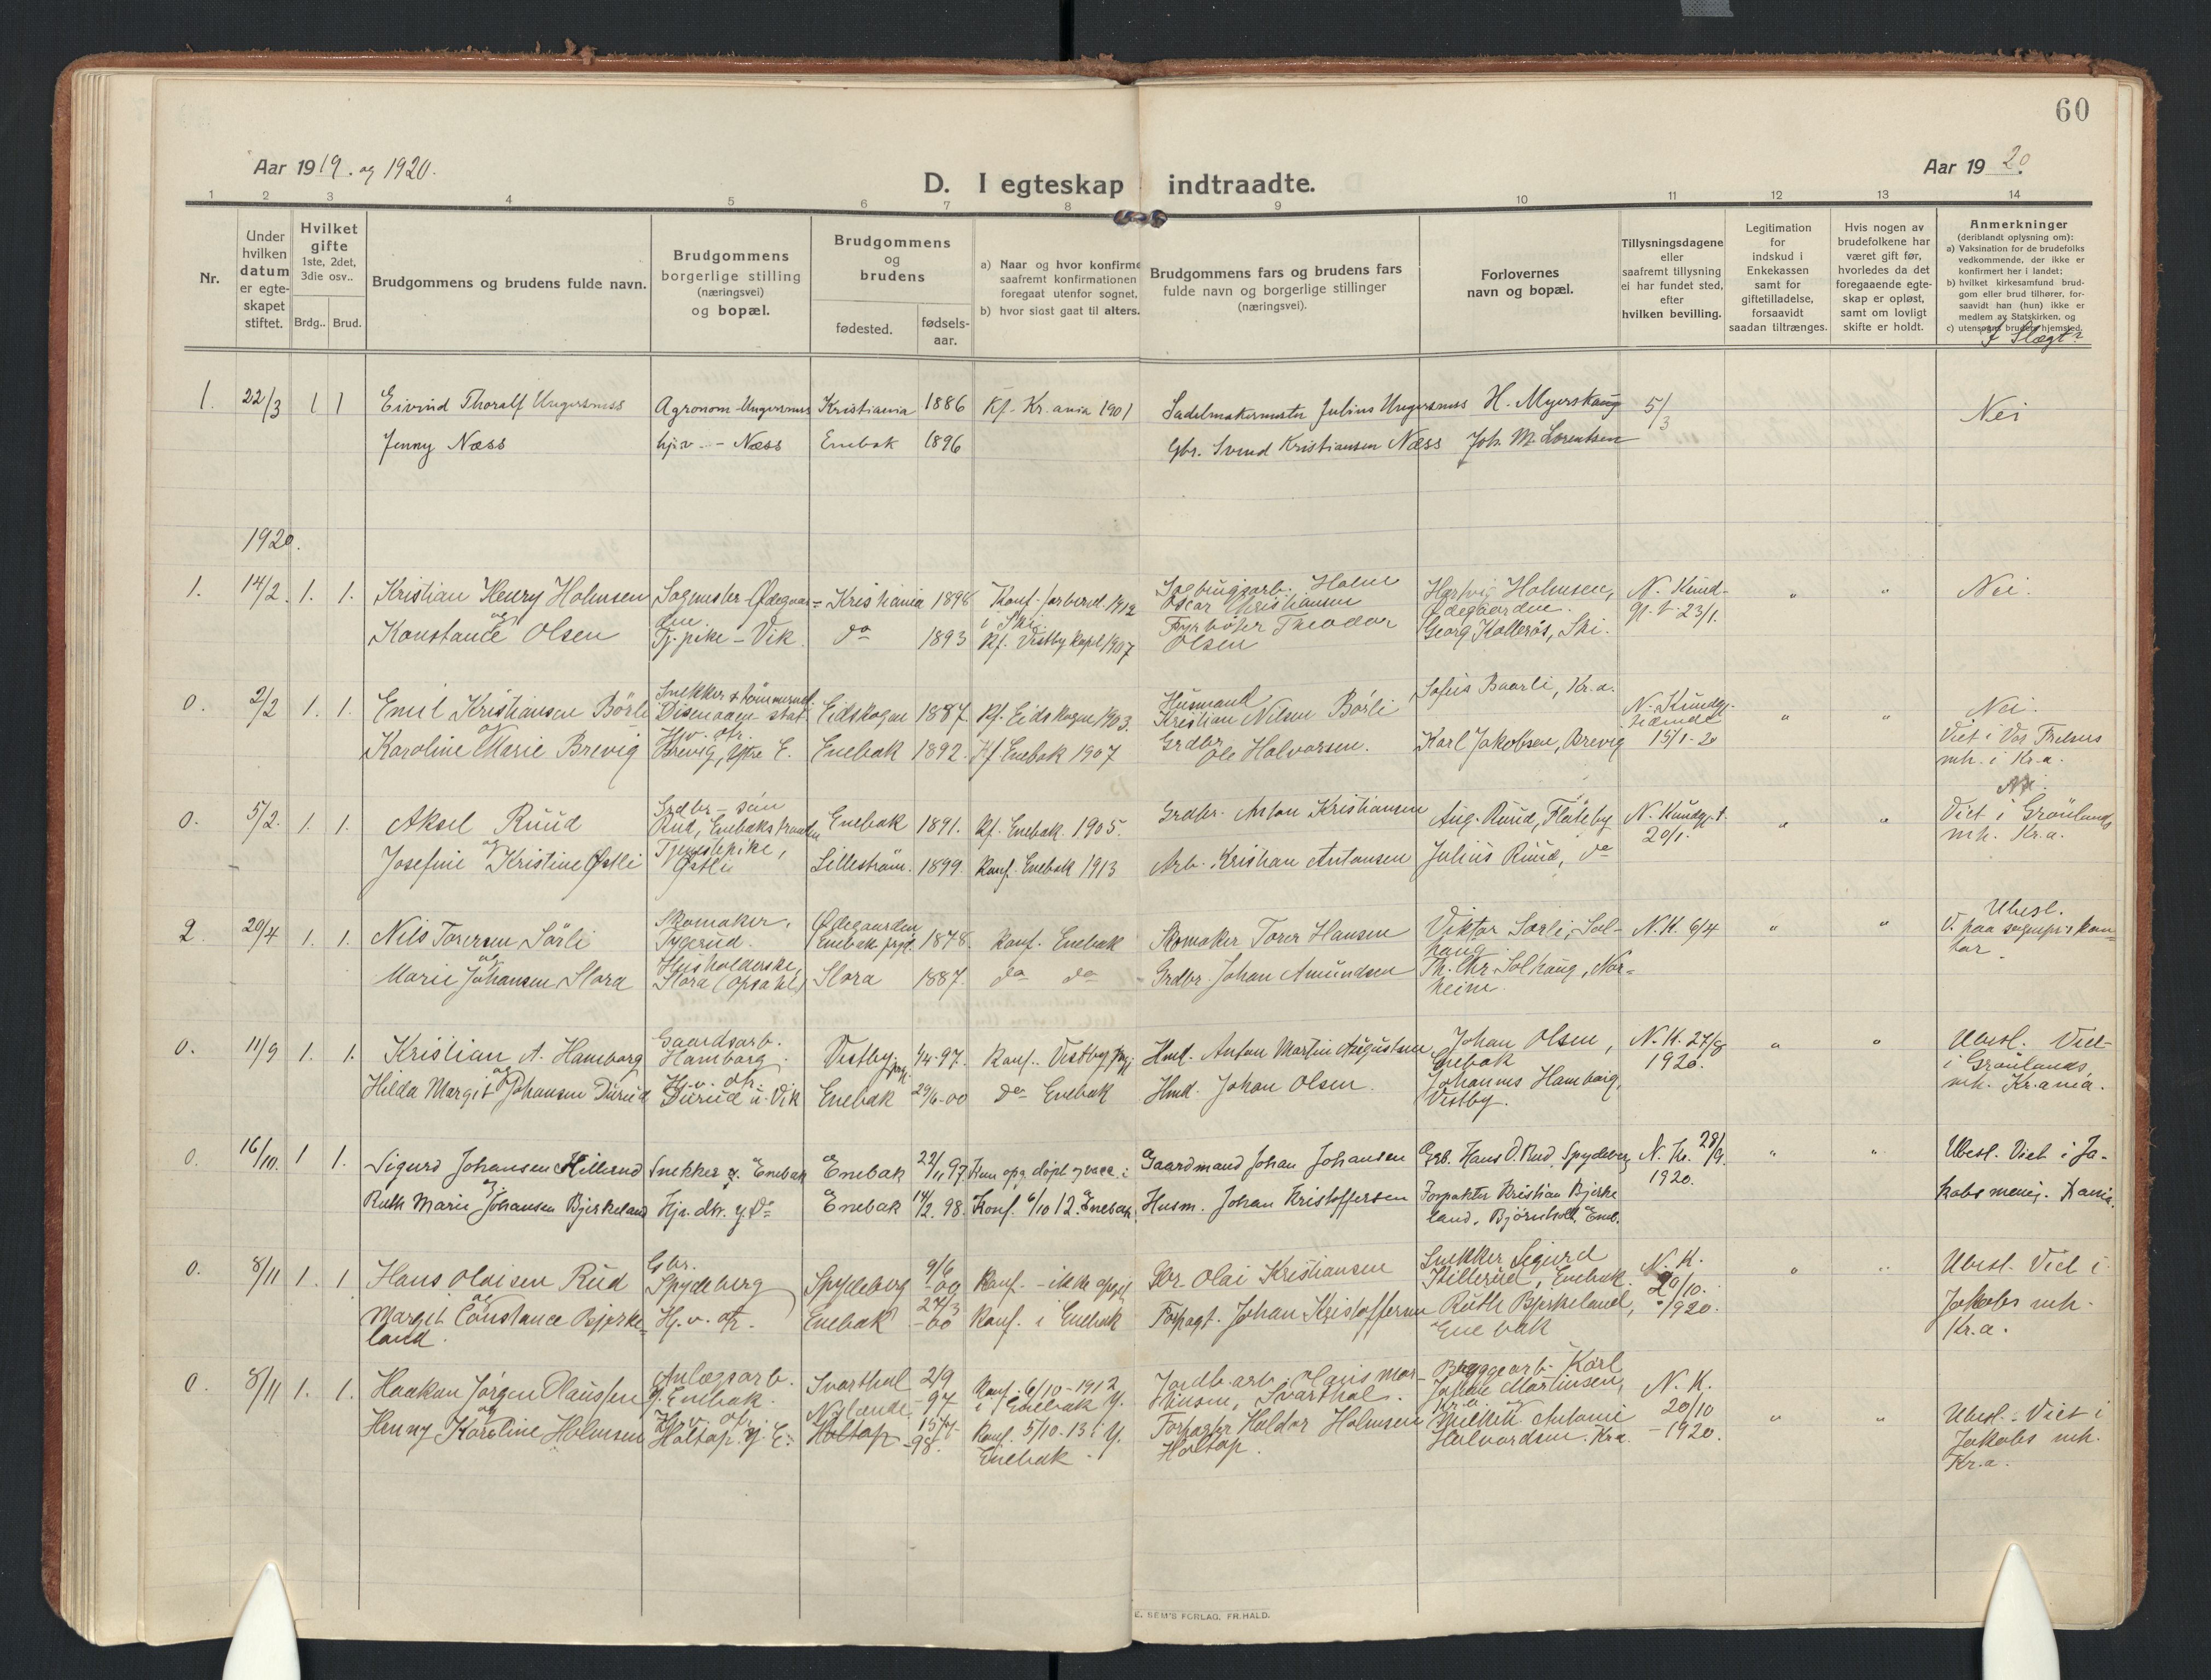 60
Aar 1919. og 1920.
D. I egteskap indtraadte.
Aar 1920.
1 2 3 4 5 6 7 8 9 10 11 12 13 14
Nr.
Under hvilken datum er egte-skapet stiftet.
Hvilket gifte
1ste, 2det, 3die osv..
Brdg.. Brud.
Brudgommens og brudens fulde navn.
Brudgommens borgerlige stilling (næringsvei) og bopæl.
Brudgommens og brudens
fødested. fødsels-aar.
a) Naar og hvor konfirme
saafremt konfirmationen
foregaat utenfor sognet,
b) hvor sidst gaat til alters.
Brudgommens fars og brudens fars
fulde navn og borgerlige stillinger
(næringsvei).
Forlovernes
navn og bopæl.
Tillysningsdagene
eller
saafremt tillysning
ei har fundet sted,
efter
hvilken bevilling.
Legitimation
for
indskud i
Enkekassen
samt for
giftetilladelse,
forsaavidt
saadan tiltrænges.
Hvis nogen av
brudefolkene har
været gift før,
hvorledes da det
foregaaende egte-
skap er opløst,
samt om lovligt
skifte er holdt.
Anmerkninger
(deriblandt oplysning om):
a) Vaksination for de brudefolks
vedkommende, der ikke er
konfirmert her i landet;
b) hvilket kirkesamfund brud-
gom eller brud tilhører, for-
saavidt han (hun) ikke er
medlem av Statskirken, og
c) utensogns bruders hjemsted.
I Slægt?
1. 22/3 1 1 Eivind Thoralf Ungersness Agronom Ungersness Kristiania 1886 Kf. Kr.ania 1901 Sadelmakermester Julius Ungersness H. Myerskaug 5/3 Nei
Jenny Næss hjv. - Næss Enebak 1896 Gbr. Svend Kristiansen Næss Joh. M. Lorentsen
1920.
1. 14/2. 1. 1. Kristian Henry Holmsen Sagmester Ødegaar- Kristiania 1898 Konf. 1912 Oscar Kristiansen Holm Hartvig Holmsen, N. Kund- " " Nei.
og den. i Ski. Ødegaarden. gj. t. 23/1.
Konstance Olsen Tj. pike - Vik. do 1893 Kf. Vestby kapel 1907 Fyrbøter Theodor Olsen Georg Kollerös, Ski.
0. 2/2 1. 1. Emil Kristiansen Börli Snekker & tømmermd. Disenaaen stat. Eidskogen 1887. Kf. Eidskogen 1903. Husmand Kristian Nilsen Börli Sofus Baarli, Kr.a. N. Kundgj. " " Nei.
og
Karoline Marie Brevig Hv. dtr. Brevig, Ytre E. Enebak 1892. Kf Enebak 1907 Grdbr. Ole Halvorsen. Karl Jakobsen, Brevig 15/1-20 Viet i Vor Frelsers mh. i Kr.a.
0. 5/2. 1. 1. Aksel Ruud Grdbr.-søn Rud, Enebak Enebak 1891. Kf. Enebak 1905. Grdbr. Anton Kristiansen Aug. Ruud, Flateby N. Kundgj.t. 20/1. " " Nei. Viet i Grönlands mh. Kr.a.
og
Josefine Kristine Østli Tjenestepike, Østli Lilleström. 1899. Konf. Enebak 1913 Arb. Kristian Antonsen Julius Ruud, do
2. 20/4 1. 1. Nils Torersen Sörli Skomaker, Tygerud. Ødegaarden, Enebak prgj. 1878. Konf. Enebak Skomaker Torer Hansen Viktor Sørli, Sol-haug N.K. 6/4 " " Ubesl. V. paa sognepr.s kon-tor.
og
Marie Johansen Slora Husholderske, Slora (Opsahl) Slora 1887. do do Grdbr. Johan Amundsen Th. Chr. Solhaug, Nor-heim.
0. 11/9 1. 1. Kristian A. Hamborg Gaardsarb. Hamborg. Vestby prgj. 4/4-97. Konf. Vestby prgj Hmd. Anton Martin Augustsen Johan Olsen, Enebak N.K. 27/8 1920. " " Ubesl. Viet i Grönlands, mh. Kr.ania.
og
Hilda Margit Johansen Durud Hv. dtr. Durud u. Vik Enebak 29/6-00 do Enebak Hmd. Johan Olsen. Johannes Hamborg, Vestby.
0. 16/10. 1 1. Sigurd Johansen Hillerud Snekker y. Enebak Enebak 22/11 97 døpt vacc. i Gaardmand Johan Johansen Grb. Hans O. Rud, Spydeberg N. K. 28/9. 1920. " " Ubesl. Viet i Ja-
og
Ruth Marie Johansen Bjerkeland Hjv. dtr. y. do Enebak 14/2. 98. Konf. 6/10 12. Enebak. Husm. Johan Kristoffersen Forpakter Kristian Bjerke-land, Björnholt, Eneb. kobs menigh. Kr.ania.
0. 8/11 1. 1 Hans Olaisen Rud Gbr. Spydeberg Spydeberg 9/6 -00 Konf. - ikke opgit Gbr. Olai Kristiansen Snekker Sigurd Hillerud, Enebak. N. K. 20/10. 1920. " " Ubesl. Viet i
og
Margit Constance Bjerke-land. Hj. v. dtr. Enebak 27/3 -00 Konf. i Enebak Forpagt. Johan Kristoffersen Ruth Bjerkeland, Enebak Jakobs mh. Kr.a.
0. 8/11 1. 1. Haakon Jørgen Olaussen Anlægsarb. Y. Enebak. Svarthol 2/9 -97 Konf. 6/10-1912 i Enebak Y. Jordb. arb. Olaus Mar-tinsen, Svarthol. Byggearb. Karl Johan Martinsen, Kr.a. N. K. 20/10 -1920. " " Ubesl. Viet i Jakobs mh. Kr.a.
og
Henny Karoline Holmsen Hjv. dtr. Holtop. y. E. Nylænde Holtop 15/4 -98. Konf. 5/10-13 i Y. Enebak. Forpagter Haldor Holmsen Holtop. Antoni Halvordsen. Kr.a.
E. SEM'S FORLAG, FR.HALD.